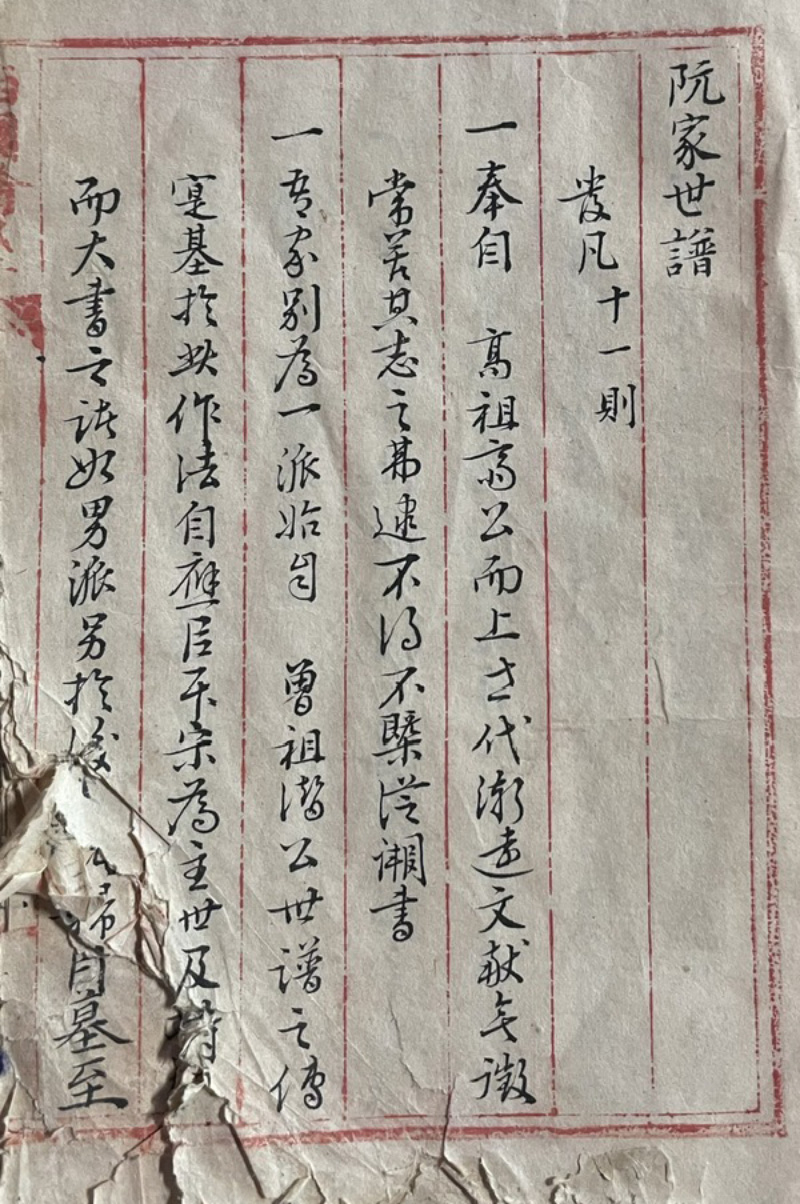 阮家世譜
發凡十一則
一奉自 高祖高公而上世代漸遠文献無徵
常苦其志之弗逮不得不槩從闕書
一吾家別為一派始自 曾祖潛公世譜之傳
寔基於此作法自應以正宗為主世及
而大書之諸如男派另於 歸自墓至